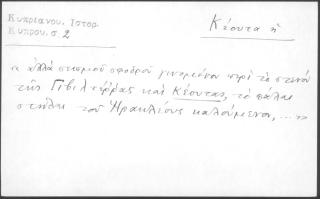 Κυπριανου, Ιστορ.
Κυπρου, σ. 2
Κέουτα ἡ
« ἀλλὰ σεισμοῦ σφοδροῦ γινομένου περὶ τὸ στενὸ
τῆς Γιβιλτέρρας καὶ Κέουτας, τὸ πάλαι
στήλη τοῦ Ἡρακλέους καλούμενον, ... »